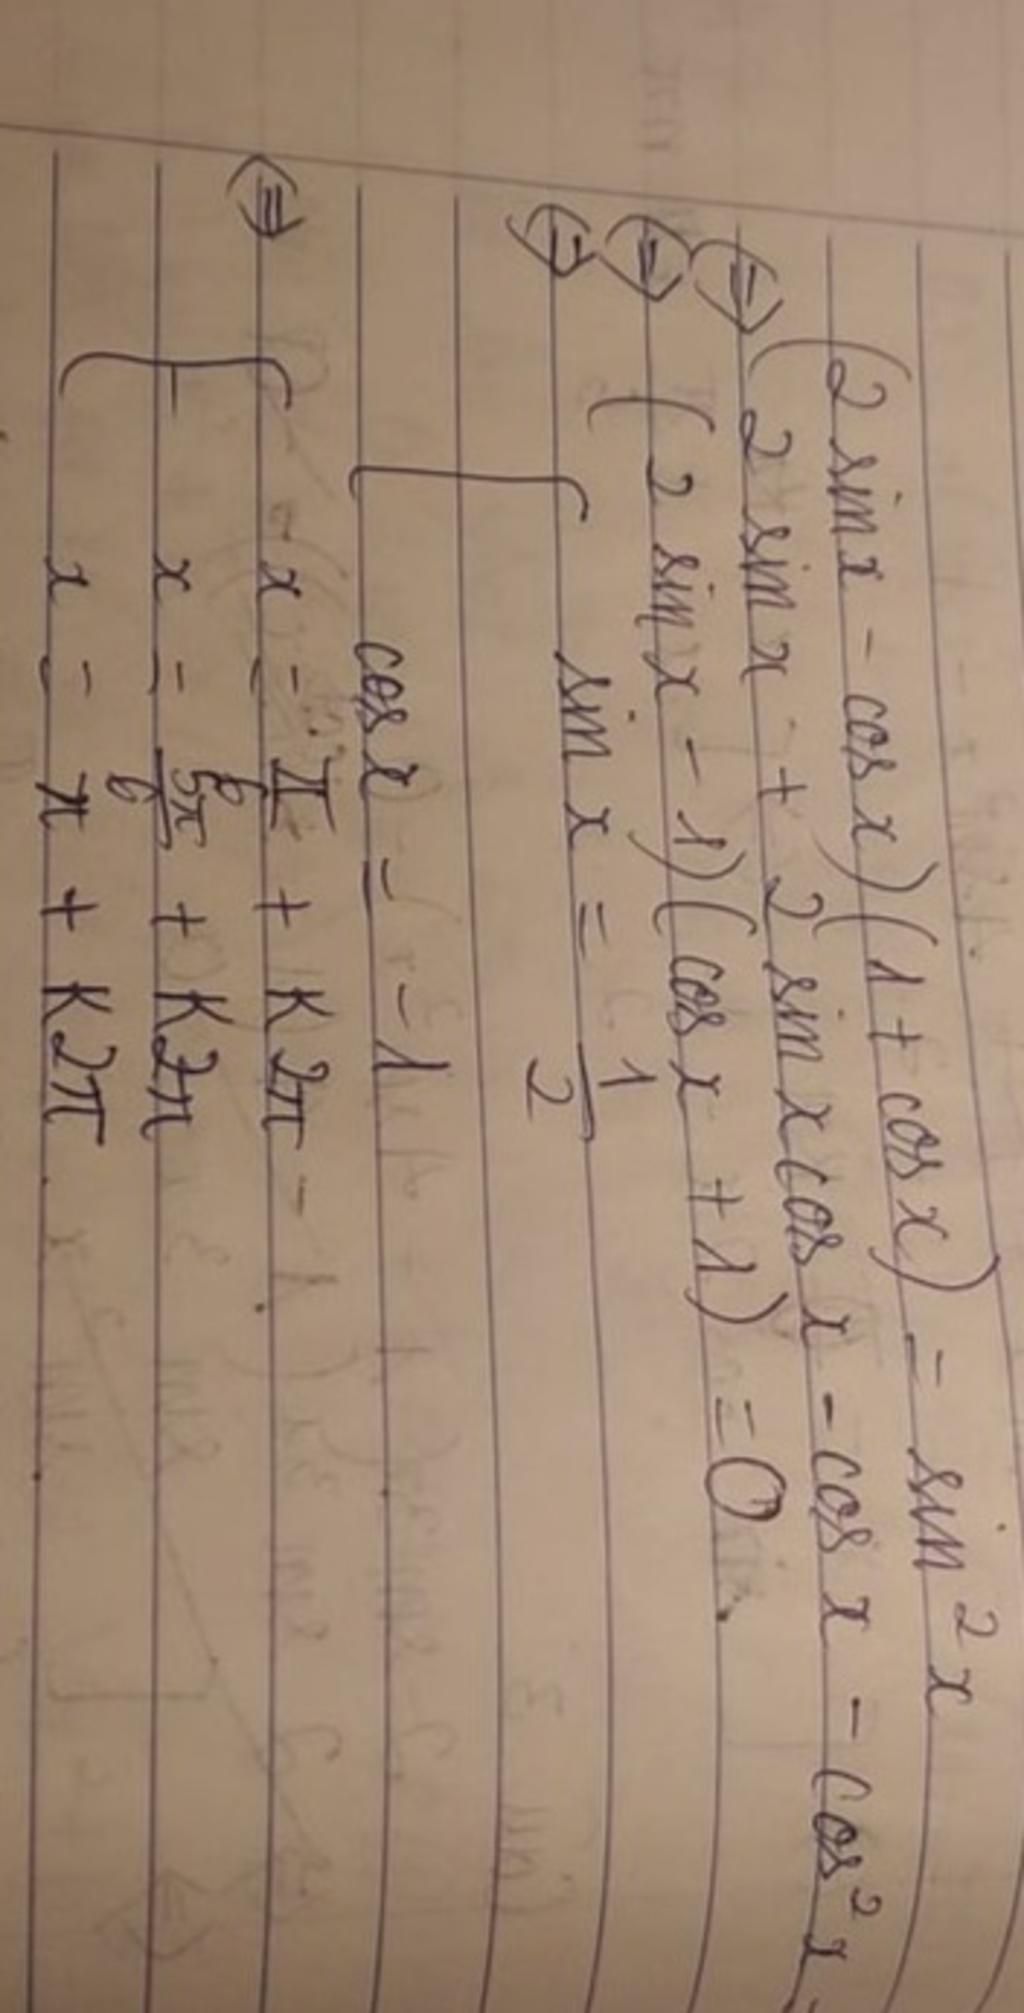 (2 sin x - cos x)(1 + cos x) = sin²x
⇔ (2 sin x + 2 sin x cos x - cos x - cos²x
⇔ (2 sin x - 1)(cos x + 1) = 0
⇔ [ sin x = 1/2
cos x = -1
⇔ [ x = π/6 + K2π
x = 5π/6 + K2π
x = π + K2π